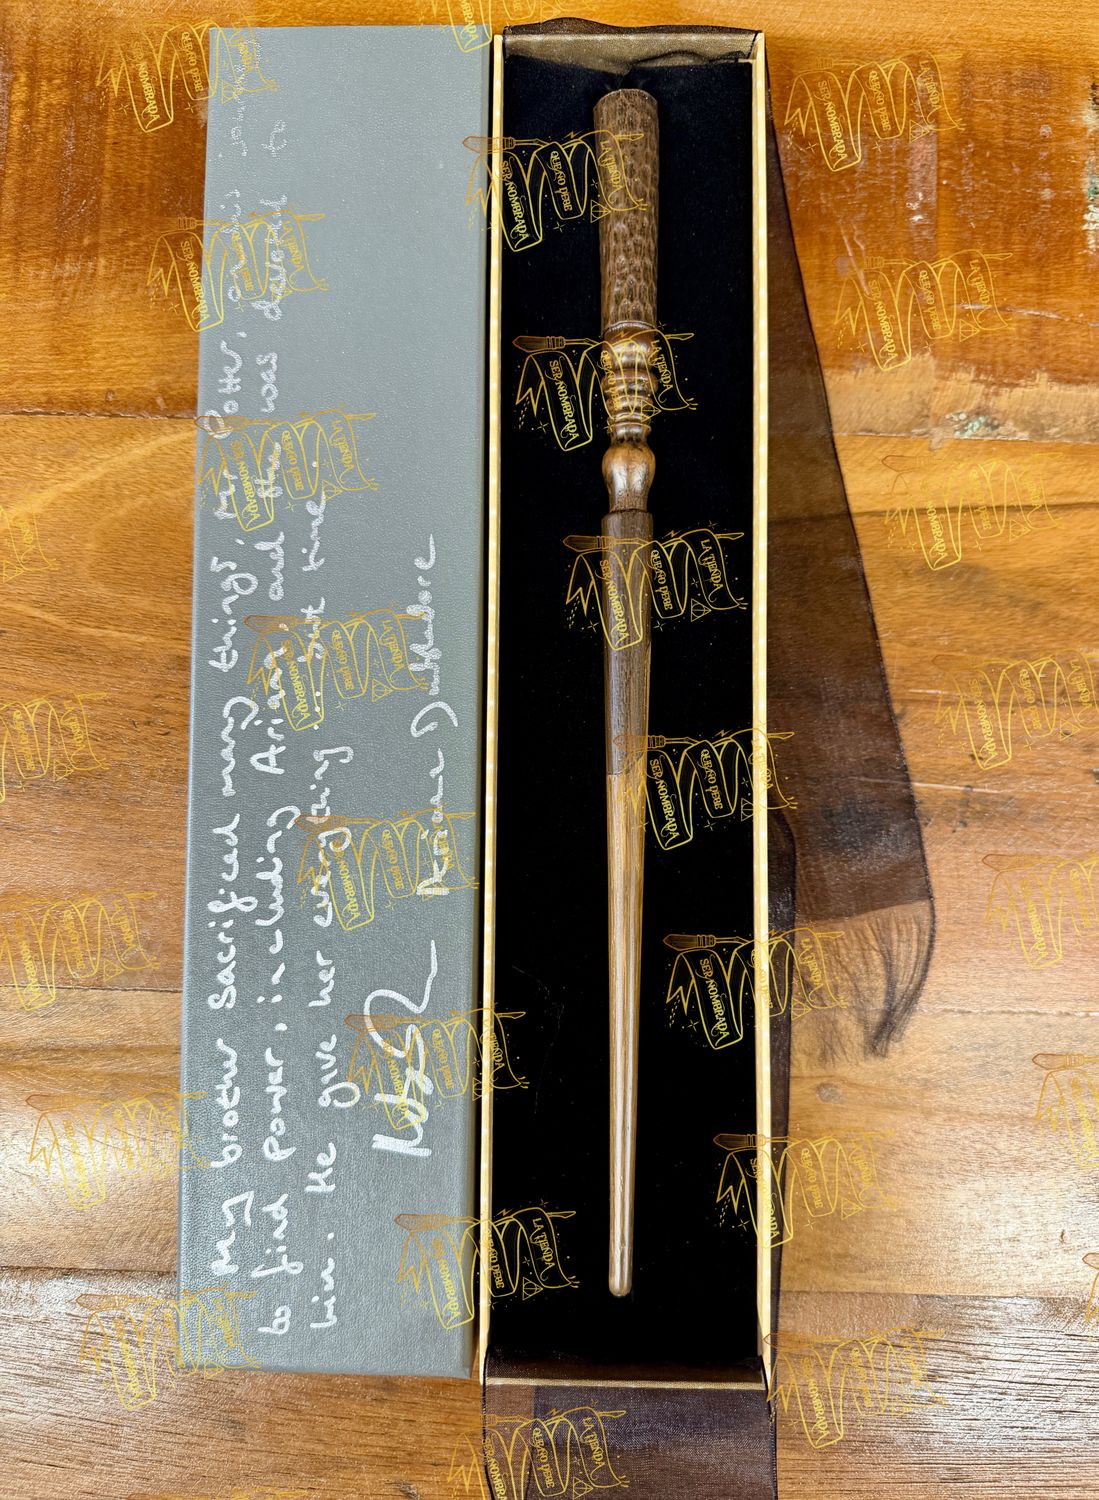 My brother sacrificed many things, Mr Potter, on his journey
to find power, including Ariana, and she was devoted to
him. He give her everything ... but time.
Dumbledore
LA TIENDA
QUE NO DEBE
SER NOMBRADA